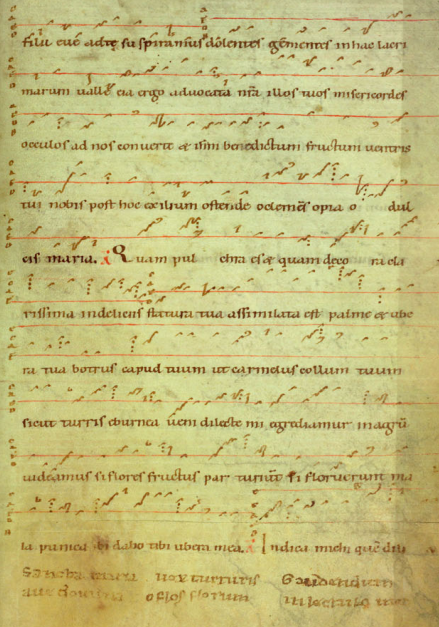 filii eue adte suspiramus dolentes gementes inhac lacri
marum valle eia ergo aduocata nr̄a illos tuos misericordes
occulos ad nos conuerte & ihm benedictum fructum uentris
tui nobis post hoc exilium ostende oclemens opia o dul
cis maria. Quam pul chra es & quam deco ra cla
rissima indeliciis statura tua assimilata est palme & ube
ra tua botrus capud tuum ut carmelus collum tuum
sicut turris eburnea ueni dilecte mi egrediamur inagrū
uideamus si flores fructus par turiunt si floruerunt ma
la punica ibi dabo tibi ubera mea. Indica michi quē dili
Sancta maria uox turturis
aue o flos florum